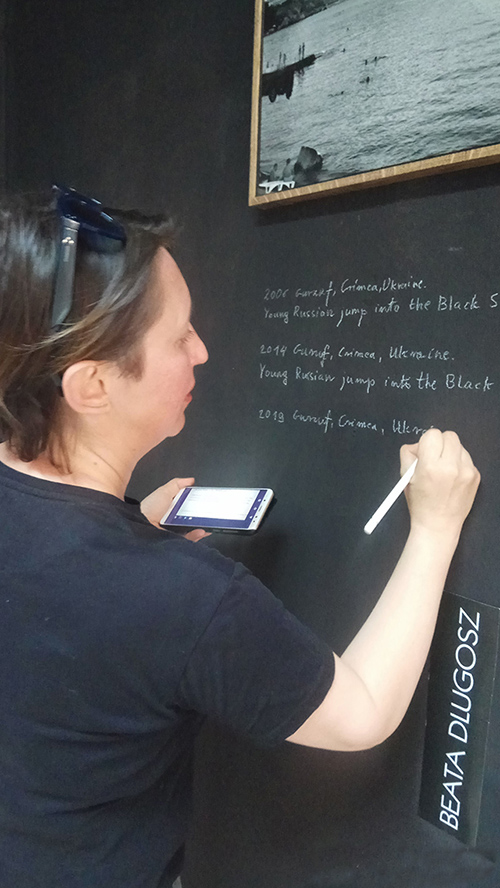 2006 Gurzuf, Crimea, Ukraine.
Young Russian jump into the Black S
2014 Gurzuf, Crimea, Ukraine.
Young Russian jump into the Black
2019 Gurzuf, Crimea, Ukra
BEATA DLUGOSZ